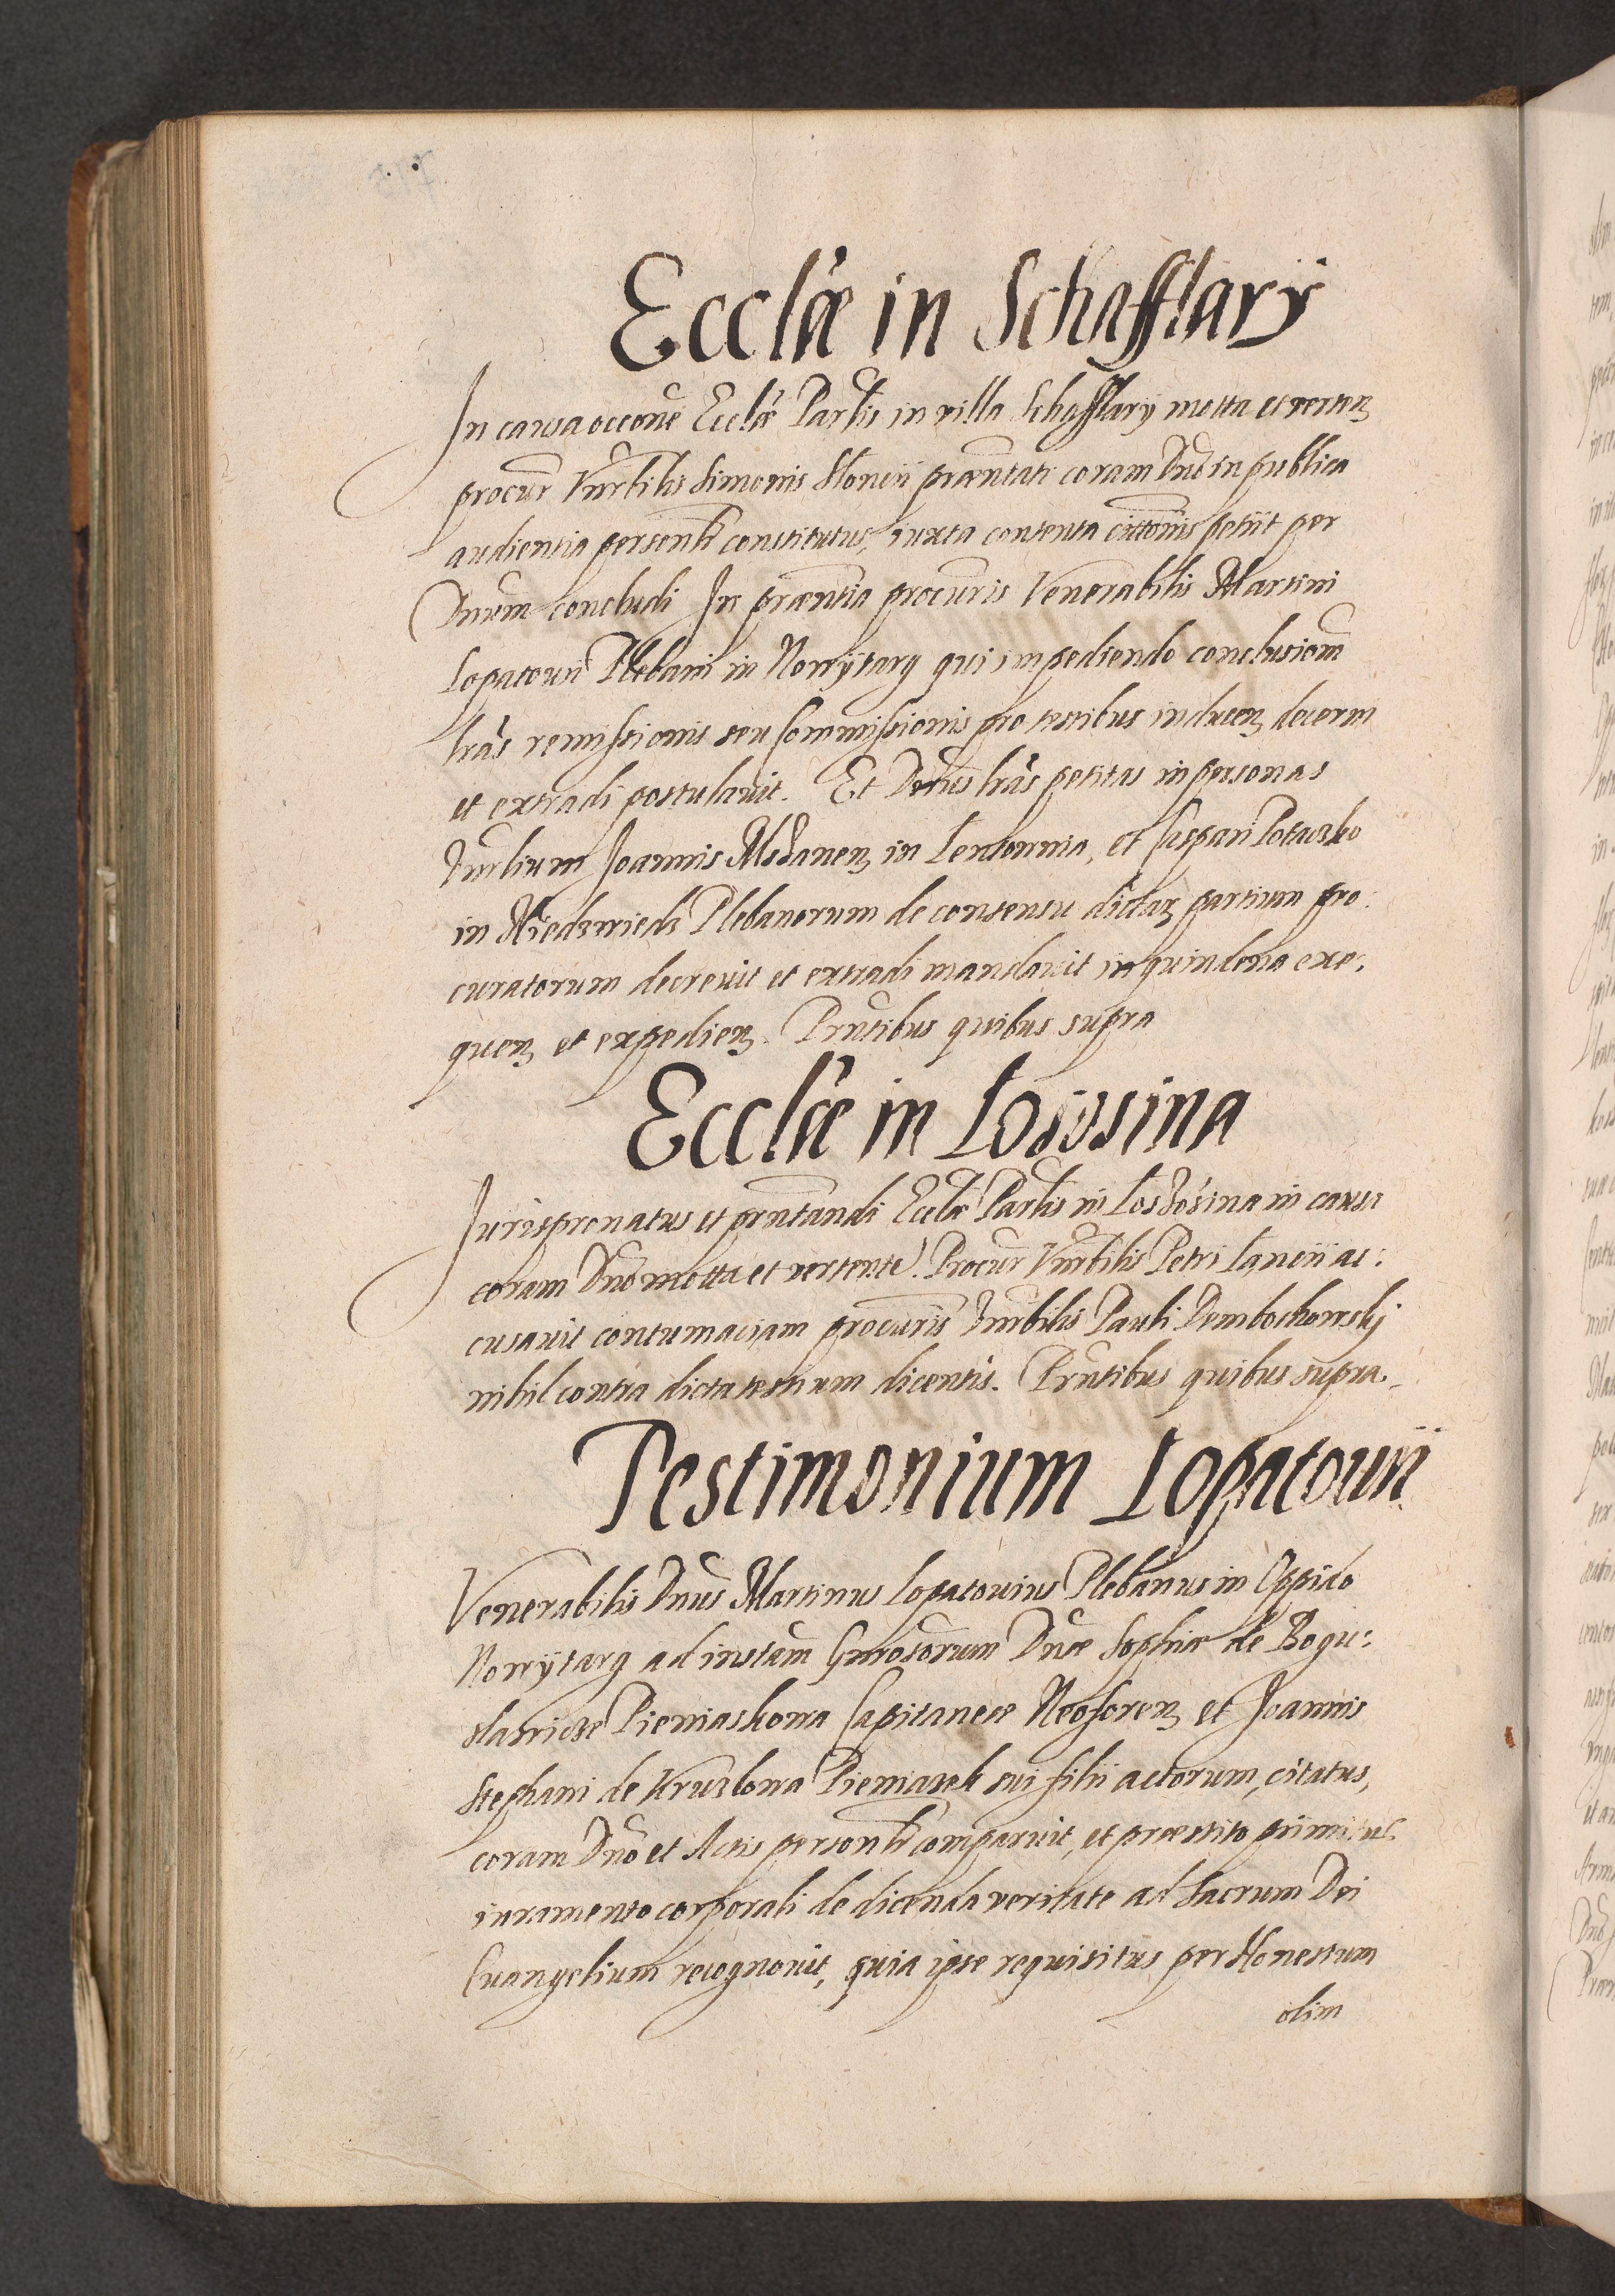 Ecclae in Schafflary
In causa occone Ecclae Parlis in villa Schafflary motta et verten
procur Vnrbilis Simonis Slonii praentati coram Dno in publica
audientia personlr constitutus, iuxta contenta cittonis petiit per
Dnum concludi In praentia procuris Venerabilis Martini
Lopatovii Plebani in Nowytarg qui impediendo conclusiom
lras remissionis seu Commissionis pro testibus inducen decerni
et extradi postulavit. Et Dnus lras petitas in personas
Vnrlium Joannis Mszanen in Lentownia, et Caspari Potaczko
in Niedzwiedz Plebanorum de consensu dictar partium pro:
curatorum decrevit et extradi mandavit in quindena exe:
quen et expedien. Prntibus quibus supra
Ecclae in Lososina
Jurispronatus et prntandi Ecclae Parlis in Loszosina in causa
coram Dno motta et vertente. Procur Vnrbilis Petri Lancii ac:
cusavit contumaciam procuris Vnrbilis Pauli Dembochowsky
nihil contra dicta testium dicentis. Prntibus quibus supra.
Testimonium Lopatovii
Venerabilis Dnus Martinus Lopatovius Plebanus in Oppido
Nowytarg ad instam Gnrosorum Dnae Sophiae de Bogu:
slawicze Pieniaskowa Capitaneae Neoforen et Joannis
Stephani de Kruzlowa Pieniazek sui filii actorum, citatus,
coram Dno et Actis personlr comparuit, et praestito primitus
iuramento corporali de dicenda veritate ad Sacrum Dei
Evangelium recognovit, quia ipse requisitus per Honestum
olim